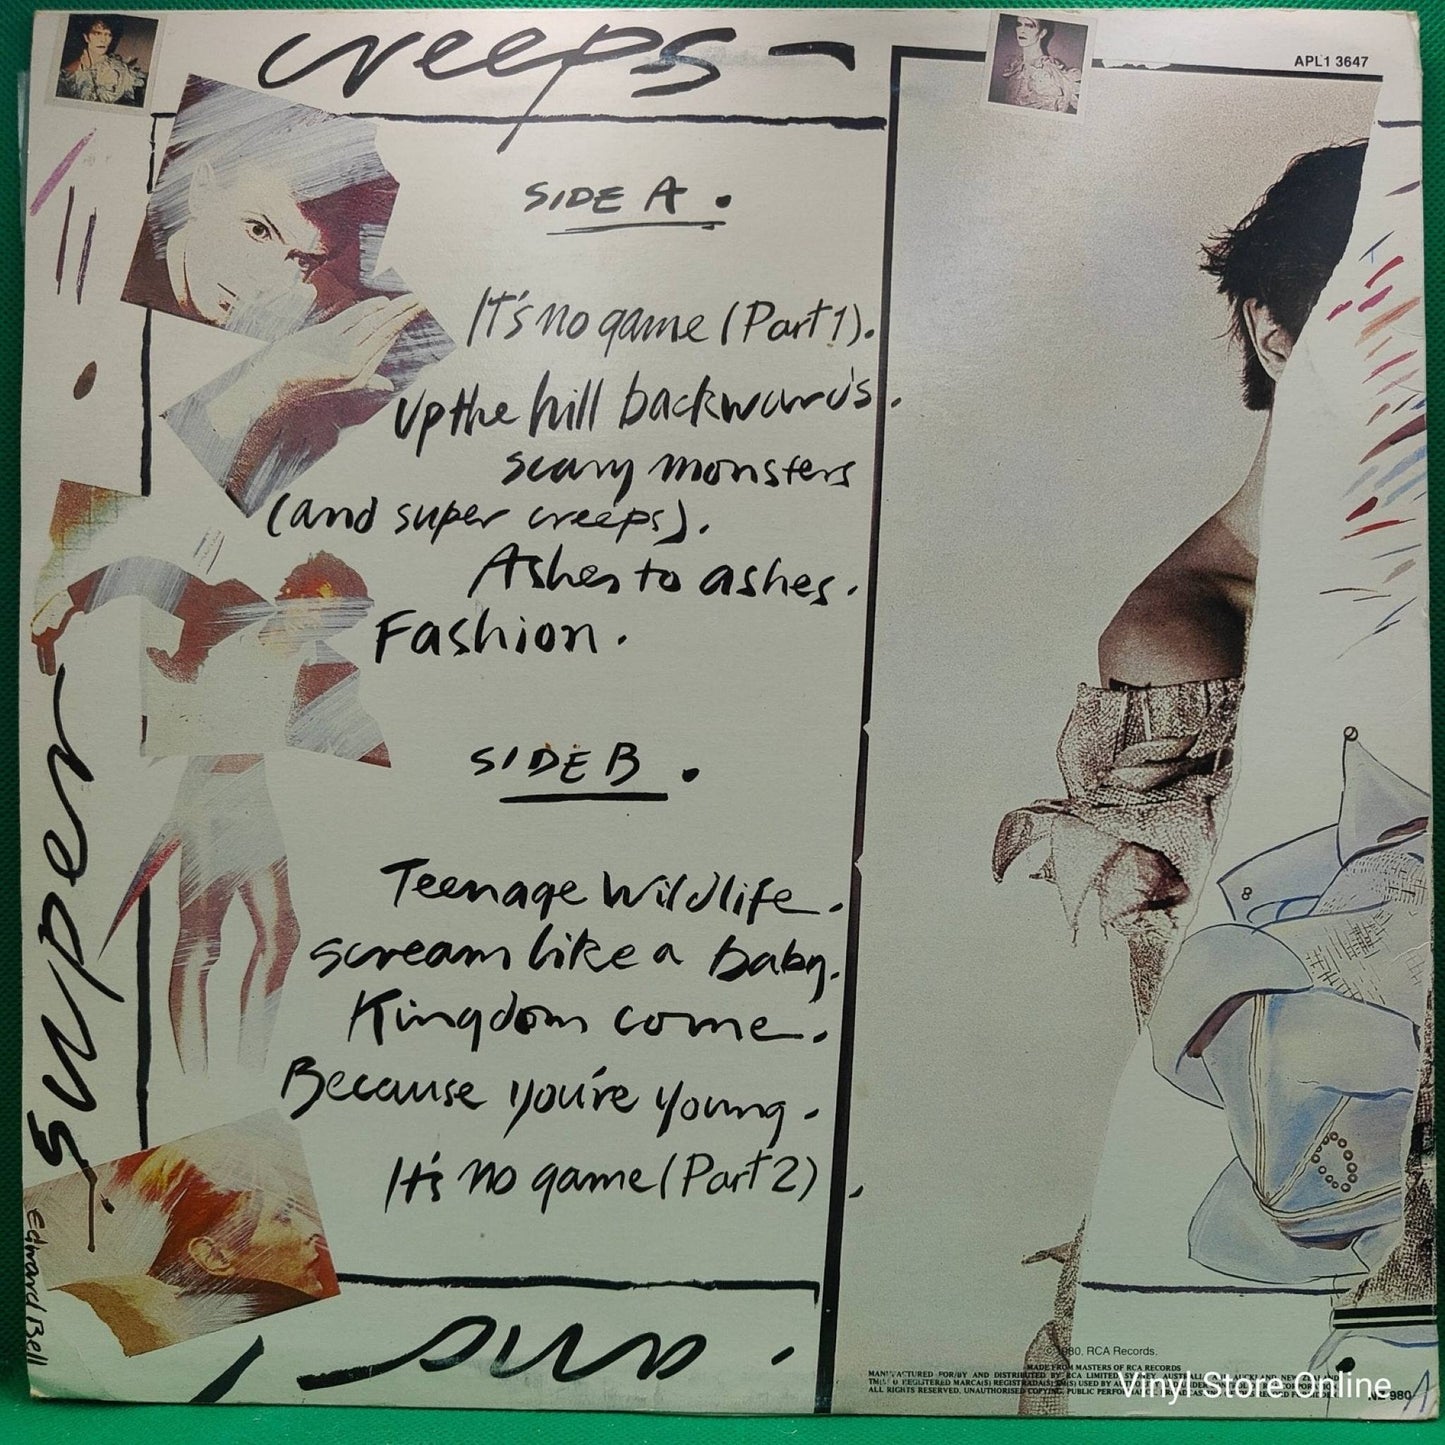 creeps -
APL1 3647
SIDE A.
It's no game (Part 1).
Up the hill backwards.
scary monsters
(and super creeps).
Ashes to ashes.
Fashion.
SIDE B.
Teenage Wildlife.
scream like a baby.
Kingdom come.
Because you're young.
It's no game (Part 2).
super
Edward Bell
and.
RCA Records.
MADE FROM MASTERS OF RCA RECORDS
MANUFACTURED FOR/BY AND DISTRIBUTED BY RCA LIMITED, SYDNEY, AUSTRALIA
REGISTERED MARCA(S) REGISTRADA(S) USED BY
ALL RIGHTS RESERVED, UNAUTHORISED COPYING, PUBLIC
Vinyl Store Online